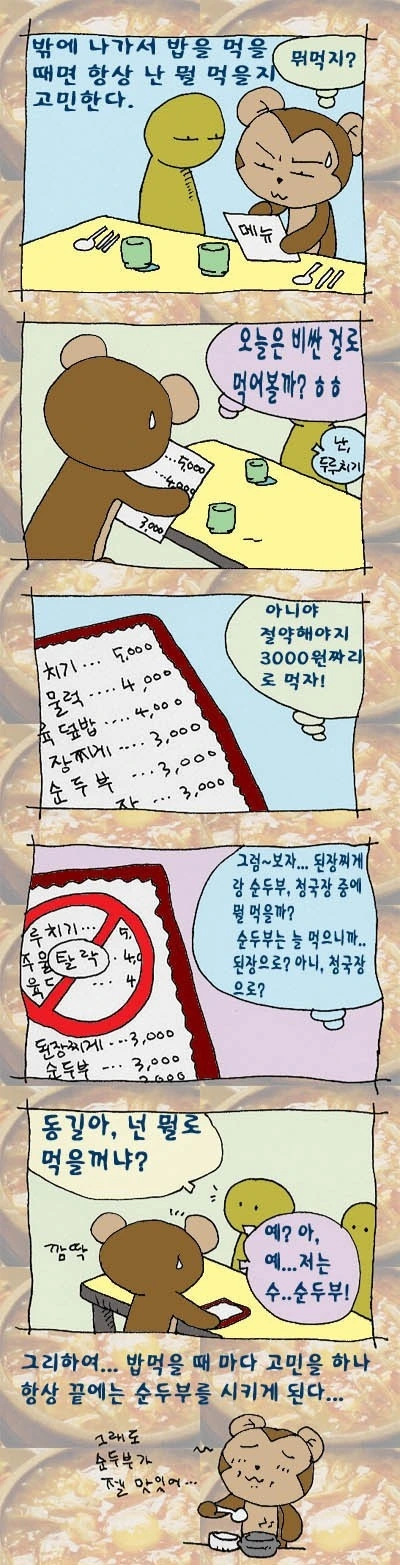 밖에 나가서 밥을 먹을
때면 항상 난 뭘 먹을지
고민한다.
뭐먹지?
메뉴
오늘은 비싼 걸로
먹어볼까? ㅎㅎ
난,
두루치기
...5,000
...4,000
3,000
아니야
절약해야지
3000원짜리
로 먹자!
치기... 5,000
물럭.... 4,000
육덮밥.... 4,000
장찌게.... 3,000
순두부... 3,000
장... 3,000
그럼~보자... 된장찌게
랑 순두부, 청국장 중에
뭘 먹을까?
순두부는 늘 먹으니까..
된장으로? 아니, 청국장
으로?
루치기... 5,
주물 탈락 . 4,0
육드 .. 4
된장찌게...3,000
순두부...3,000
3,000
동길아, 넌 뭘로
먹을꺼냐?
깜딱
예? 아,
예...저는
수..순두부!
그리하여... 밥먹을 때 마다 고민을 하나
항상 끝에는 순두부를 시키게 된다...
그래도
순두부가
젤 맛있어...